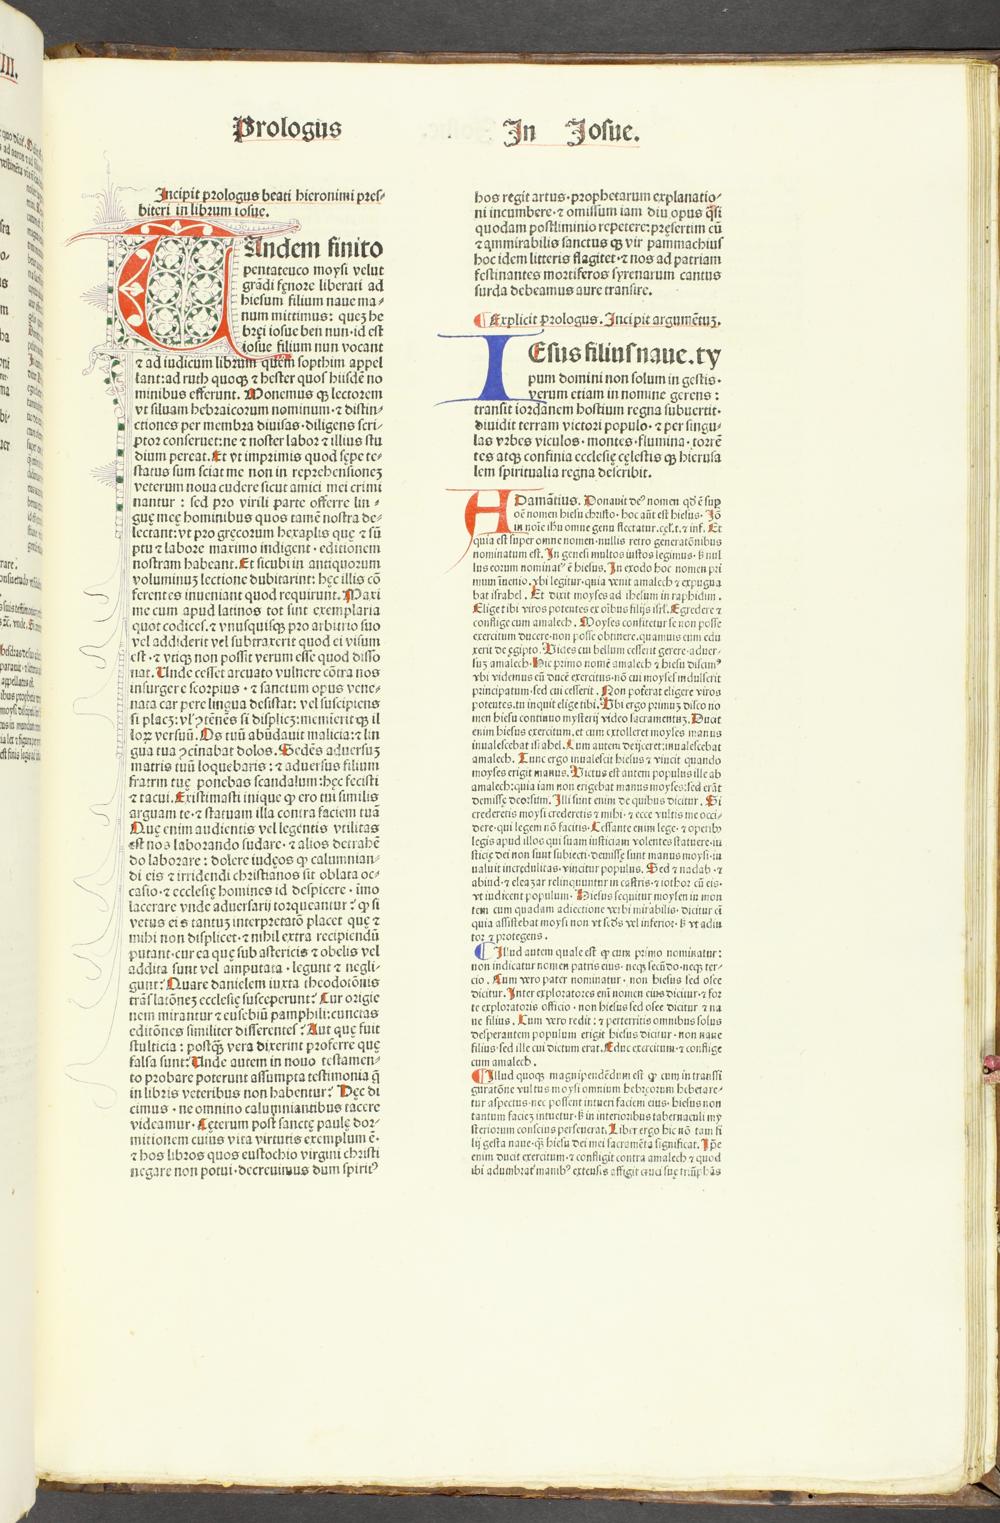 Prologus In Josue.
Incipit prologus beati hieronimi pres⸗
biteri in librum iosue.
TAndem finito
pentateuco moysi velut
grãdi fęnore liberati ad
hiesum filium naue ma⸗
num mittimus: quez he
bręi iosue ben nun·id est
iosue filium nun vocant
⁊ ad iudicum librum quẽm sopthim appel
lant:ad ruth quoqꝫ ⁊ hester quos hiisdẽ no
minibus efferunt. Monemus qꝫ lectorem
vt siluam hebraicorum nominum·⁊ distin⸗
ctiones per membra diuisas·diligens scri⸗
ptor conseruet:ne ⁊ noster labor ⁊ illius stu
dium pereat.Et vt imprimis quod sępe te⸗
status sum sciat me non in reprehensionez
veterum noua cudere sicut amici mei crimi
nantur : sed pro virili parte offerre lin⸗
guę męę hominibus quos tamẽ nostra de⸗
lectant:vt pro gręcorum hexaplis quę ⁊ sũ
ptu ⁊ labore maximo indigent·editionem
nostram habeant.Et sicubi in antiquorum
voluminuz lectione dubitarint: hęc illis cõ
ferentes inueniant quod requirunt. Maxi
me cum apud latinos tot sint exemplaria
quot codices.⁊ vnusquisqꝫ pro arbitrio suo
vel addiderit vel subtraxerit quod ei visum
est·⁊ vtiqꝫ non possit verum esse quod disso
nat. Unde cesset arcuato vulnere cõtra nos
insurgere scorpius·⁊ sanctum opus vene⸗
nata carpere lingua desistat: vel suscipiens
si placꝫ: vl' ↄtẽnẽs si displicꝫ:meminerit qꝫ il
loꝝ versuũ. Os tuũ abũdauit malicia:⁊ lin
gua tua ↄcinabat dolos. Sedẽs aduersuz
matris tuũ loquebaris:⁊ aduersus filium
fratrm tuę ponebas scandalum:hęc fecisti
⁊ tacui.Existimasti inique qꝫ ero tui similis
arguam te·⁊ statuam illa contra faciem tuã
Quę enim audientis vel legentis vtilitas
est nos laborando sudare·⁊ alios detrahẽ
do laborare: dolere iudęos qꝫ calumnian⸗
di eis ⁊ irridendi christianos sit oblata oc⸗
casio·⁊ ecclesię homines id despicere·imo
lacerare vnde aduersarij torqueantur? qꝫ si
vetus eis tantuz interpretatõ placet quę ⁊
mihi non displicet·⁊ nihil extra recipiendũ
putant·cur ea quę sub astericis ⁊ obelis vel
addita sunt vel amputata·legunt ⁊ negli⸗
gunt? Quare danielem iuxta theodotõnis
trãslatõnez ecclesię susceperunt? Cur origie
nem mirantur ⁊ eusebiũ pamphili:cunctas
editõnes similiter differentes? Aut quę fuit
stulticia : postqꝫ vera dixerint proferre quę
falsa sunt? Unde autem in nouo testamen⸗
to probare poterunt assumpta testimonia q̃
in libris veteribus non habentur? Hęc di
cimus·ne omnino calumniantibus tacere
videamur·Cęterum post sanctę paulę dor⸗
mitionem cuius vita virtutis exemplum ẽ·
⁊ hos libros quos eustochio virgini christi
negare non potui·decreuimus dum spiritꝰ
hos regit artus·prophetarum explanatio⸗
ni incumbere·⁊ omissum iam diu opus q̃si
quodam postliminio repetere:pręsertim cũ
⁊ ammirabilis sanctus qꝫ vir pammachius
hoc idem litteris flagitet·⁊ nos ad patriam
festinantes mortiferos syrenarum cantus
surda debeamus aure transire.
Explicit prologus.Incipit argumẽtuz.
IEsus filius naue.ty
pum domini non solum in gestis·
verum etiam in nomine gerens:
transit iordanem hostium regna subuertit·
diuidit terram victori populo·⁊ per singu⸗
las vrbes viculos·montes·flumina·torrẽ
tes atqꝫ confinia ecclesię cęlestis qꝫ hierusa
lem spiritualia regna describit.
ADamãtius. Donauit deꝰ nomen qđ ẽ sup
oẽ nomen hiesu christo·hoc aũt est hiesus·Jõ
in noĩe ihu omne genu flectatur.cęl.t.⁊ inf. Et
quia est super omne nomen·nullis retro generatõnibus
nominatum est. In genesi multos iustos legimus·ß nul
lus eorum nominatꝰ ẽ hiesus. In exodo hoc nomen pri
mum ĩuenio·vbi legitur·quia venit amalech ⁊ expugna
bat israhel. Et dixit moyses ad ihesum in raphidin.
Elige tibi viros potentes ex oĩbus filijs isrl.Egredere ⁊
conflige cum amalech. Moyses confitetur se non posse
exercitum ducere·non posse obtinere.quamuis eum edu
xerit de ęgipto. Vides cui bellum cesserit gerere·aduer⸗
suz amalech·Hic primo nomẽ amalech ⁊ hiesu discimꝰ
vbi videmus eũ ducẽ exercitus·nõ cui moyses indulserit
principatum·sed cui cesserit.Non poterat eligere viros
potentes·tu inquit elige tibi. Ubi ergo primuz disco no
men hiesu continuo mysterij video sacramentuz.Ducit
enim hiesus exercitum.et cum extolleret moyses manus
inualescebat israhel.Cum autem deijceret:inualescebat
amalech. Tunc ergo inualescit hiesus ⁊ vincit quando
moyses erigit manus.Victus est autem populus ille ab
amalech:quia iam non erigebat manus moyses:sed erãt
demissę deorsum.Illi sunt enim de quibus dicitur.Si
crederetis moysi crederetis ⁊ mihi·⁊ ecce vultis me occi⸗
dere·qui legem nõ facitis.Cessante enim lege·⁊ operibꝰ
legis apud illos qui suam iusticiam volentes statuere·iu
sticię dei non sunt subiecti·demissę sunt manus moysi·in
ualuit incrędulitas·vincitur populus. Sed ⁊ nadab·⁊
abiud·⁊ eleazar relinquuntur in castris·⁊ iothor cũ eis·
vt iudicent populum·Hiesus sequitur moysen in mon
tem cum quadam adiectione verbi mirabilis·dicitur eĩ
quia assistebat moysi non vt scďs vel inferior·ß vt adiu
tor ⁊ protegens.
Illud autem quale est qꝫ cum primo nominatur:
non indicatur nomen patris eius·neqꝫ secũdo·neqꝫ ter⸗
cio.Cum vero pater nominatur·non hiesus sed osee
dicitur.Inter exploratores enĩ nomen eius dicitur·⁊ for
te exploratoris officio·non hiesus sed osee dicitur ⁊ na
ue filius.Cum vero redit:⁊ perterritis omnibus solus
desperantem populum erigit hiesus dicitur·non naue
filius·sed ille cui dictum erat.Educ exercitum·⁊ conflige
cum amalech.
Illud quoqꝫ magnipendẽdum est qꝫ cum in transfi
guratõne vultus moysi omnium hebręorum hebetare⸗
tur aspectus·nec possent intueri faciem eius·hiesus non
tantum faciez intuetur·ß in interioribus tabernaculi my
steriorum conscius perseuerat.Liber ergo hic nõ tam fi
lij gesta naue·qꝫ hiesu dei mei sacramẽta significat.Ipe
enim ducit exercitum·⁊ confligit contra amalech ⁊ quod
ibi adumbratꝰ manibꝰ extensis affigit cruci suę triũphãs